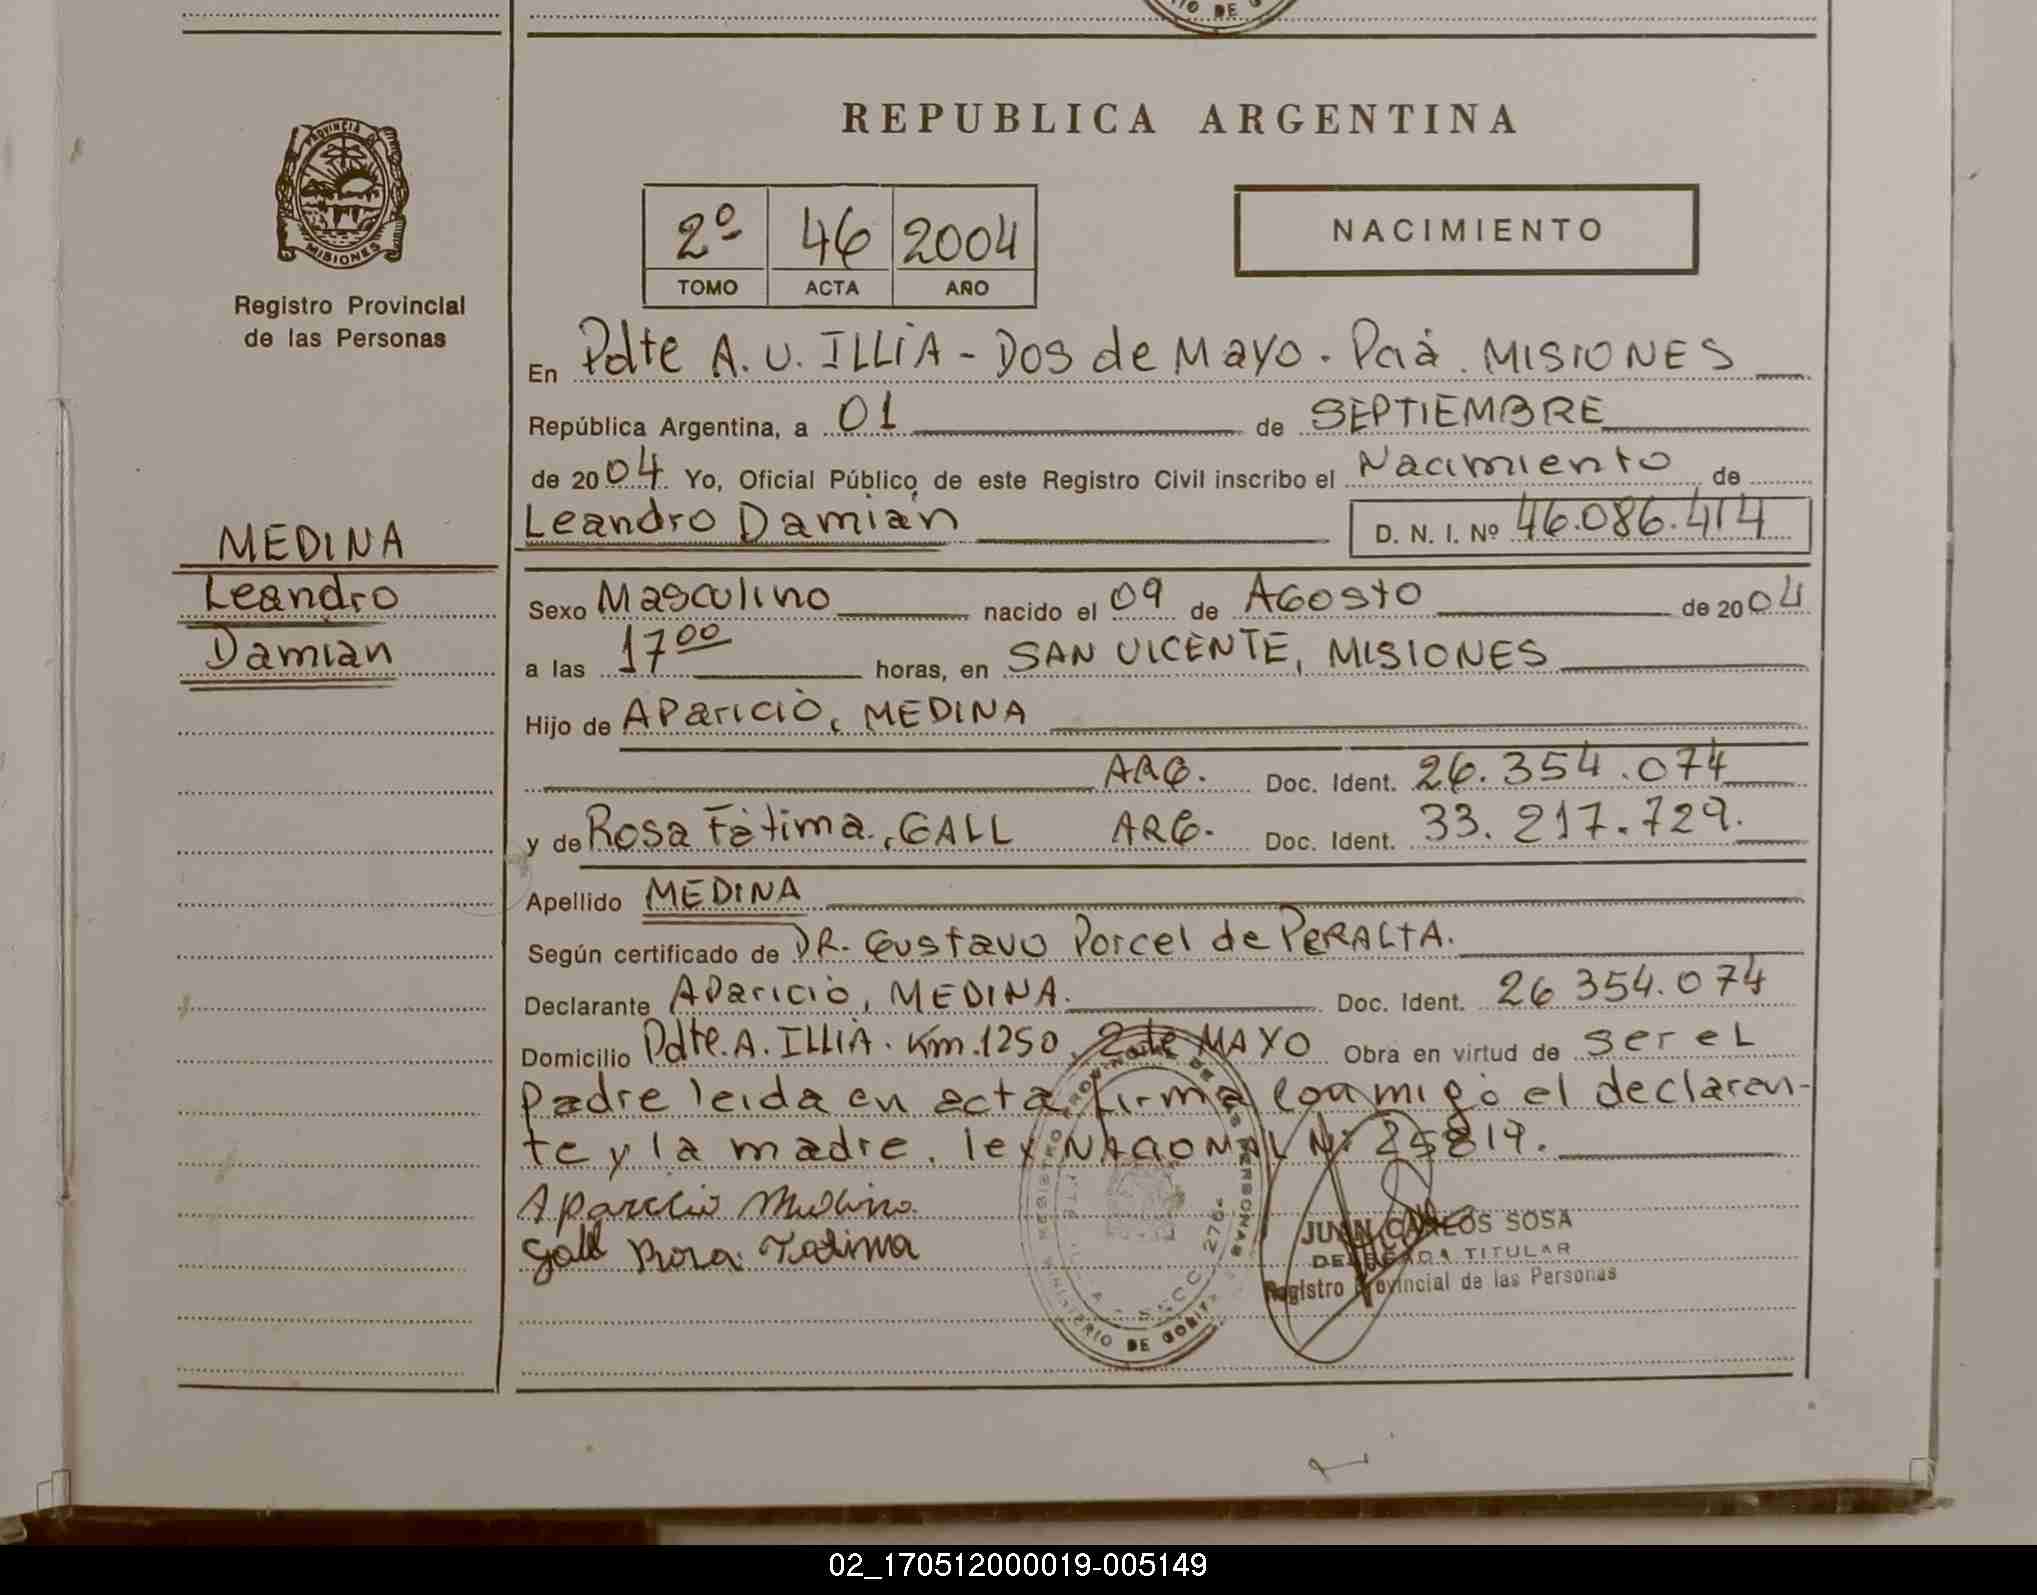 REPUBLICA ARGENTINA
PROVINCIA DE
MISIONES
Registro Provincial
de las Personas
2º 46 2004
TOMO ACTA AÑO
NACIMIENTO
En Pdte A. U. ILLIA - DOS de MAYO. Pciá. MISIONES
República Argentina, a 01 de SEPTIEMBRE
de 2004 Yo, Oficial Público de este Registro Civil inscribo el Nacimiento de
Leandro Damián D. N. I. Nº 46.086.414
MEDINA
Leandro
Damián
Sexo Masculino nacido el 09 de AGOSTO de 2004
a las 17 00 horas, en SAN VICENTE, MISIONES
Hijo de APARICIO, MEDINA
ARG. Doc. Ident. 26.354.074
y de Rosa Fátima, GALL ARG. Doc. Ident. 33.217.729.
Apellido MEDINA
Según certificado de DR. Gustavo Porcel de PERALTA.
Declarante APARICIO, MEDINA. Doc. Ident. 26 354.074
Domicilio Pdte. A. ILLIA. Km. 1250, 2 de MAYO Obra en virtud de ser el
padre leida en acta firma conmigo el declaran-
te y la madre. ley NACIONAL Nº 25819.
Aparicio Medina
Gall Rosa Fatima
JUAN CARLOS SOSA
TITULAR
Registro Provincial de las Personas
02_170512000019-005149